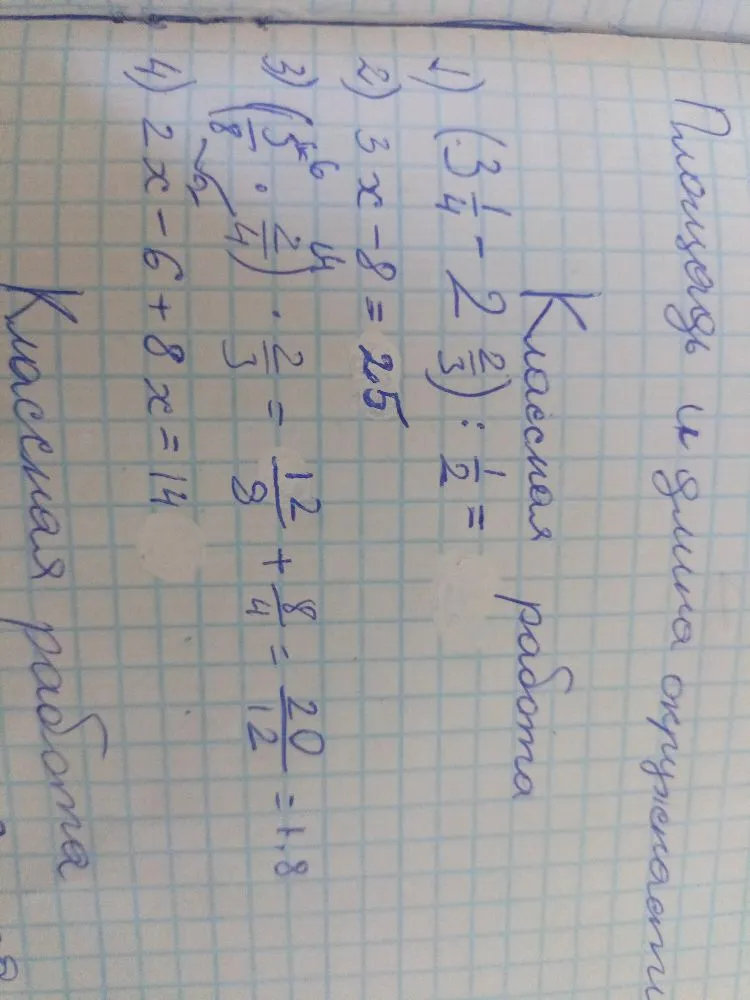 Площадь и длина окружности
Классная работа
1) (3 1/4 - 2 2/3) : 1/2 =
2) 3x - 8 = 25
3) (5/8 · 2/4) · 2/3 = 12/8 + 8/4 = 20/12 = 1,8
4) 2x - 6 + 8x = 14
Классная работа